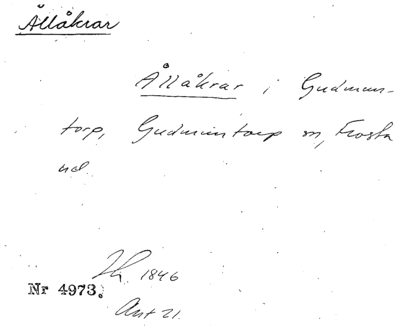 Ållåkrar
Ållåkrar i Gudmun-
torp, Gudmuntorp sn, Frosta
hd
1846
Nr 4973.
Ant 21.